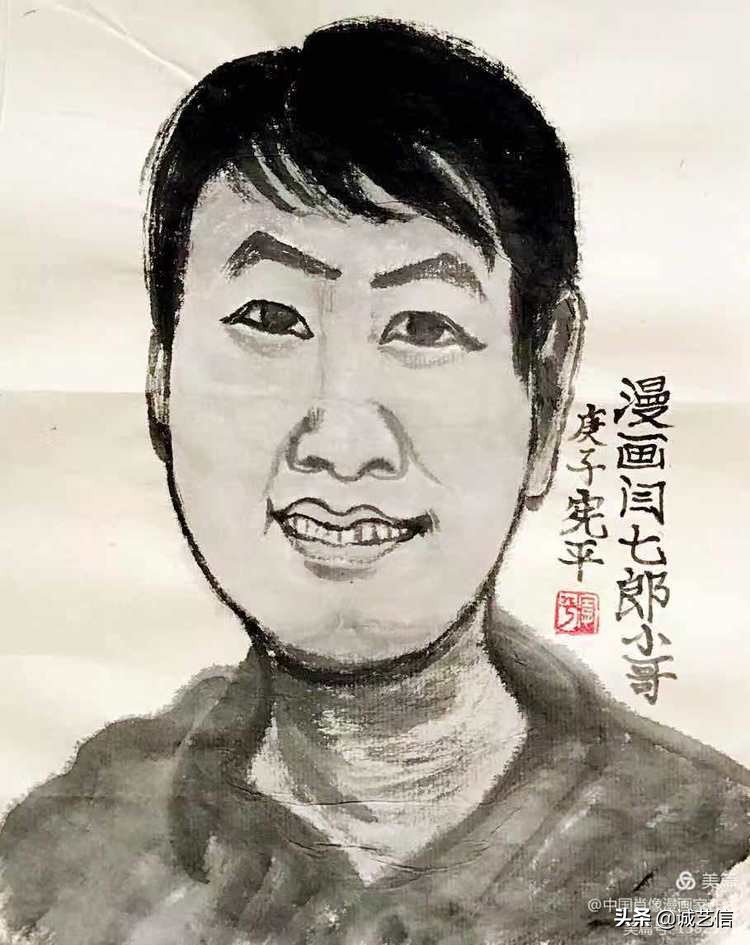 漫画闫七郎小哥
庚子宪平
美篇
@中国肖像漫画家
头条 @诚艺信
美篇号